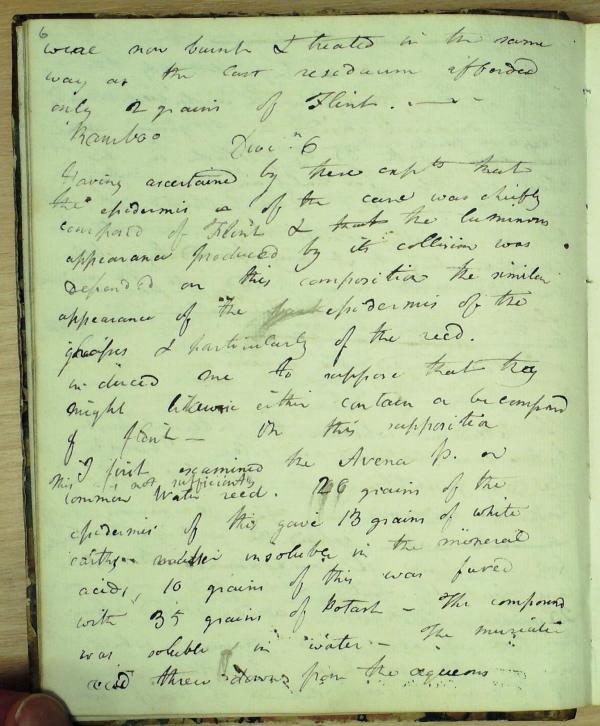 6
were now burnt & treated in the same
way as the last residuum afforded
only 2 grains of Flint.
Bamboo
Divn. 6
Having ascertained by these expts that
the epidermis of the cane was chiefly
composed of Flint & that the luminous
appearance produced by its collision was
depended on this composition the similar
appearance of the epidermis of the
grasses & particularly of the reed.
induced me to suppose that they
might likewise either contain or be composed
of flint — On this supposition
I first examined the Avena P. or
This is not sufficiently
common Water reed. 20 grains of the
epidermis of this gave 13 grains of white
earthy matter insoluble in the mineral
acids, 10 grains of this was fused
with 35 grains of Potash — The compound
was soluble in water — The muriatic
acid threw down from the aqueous